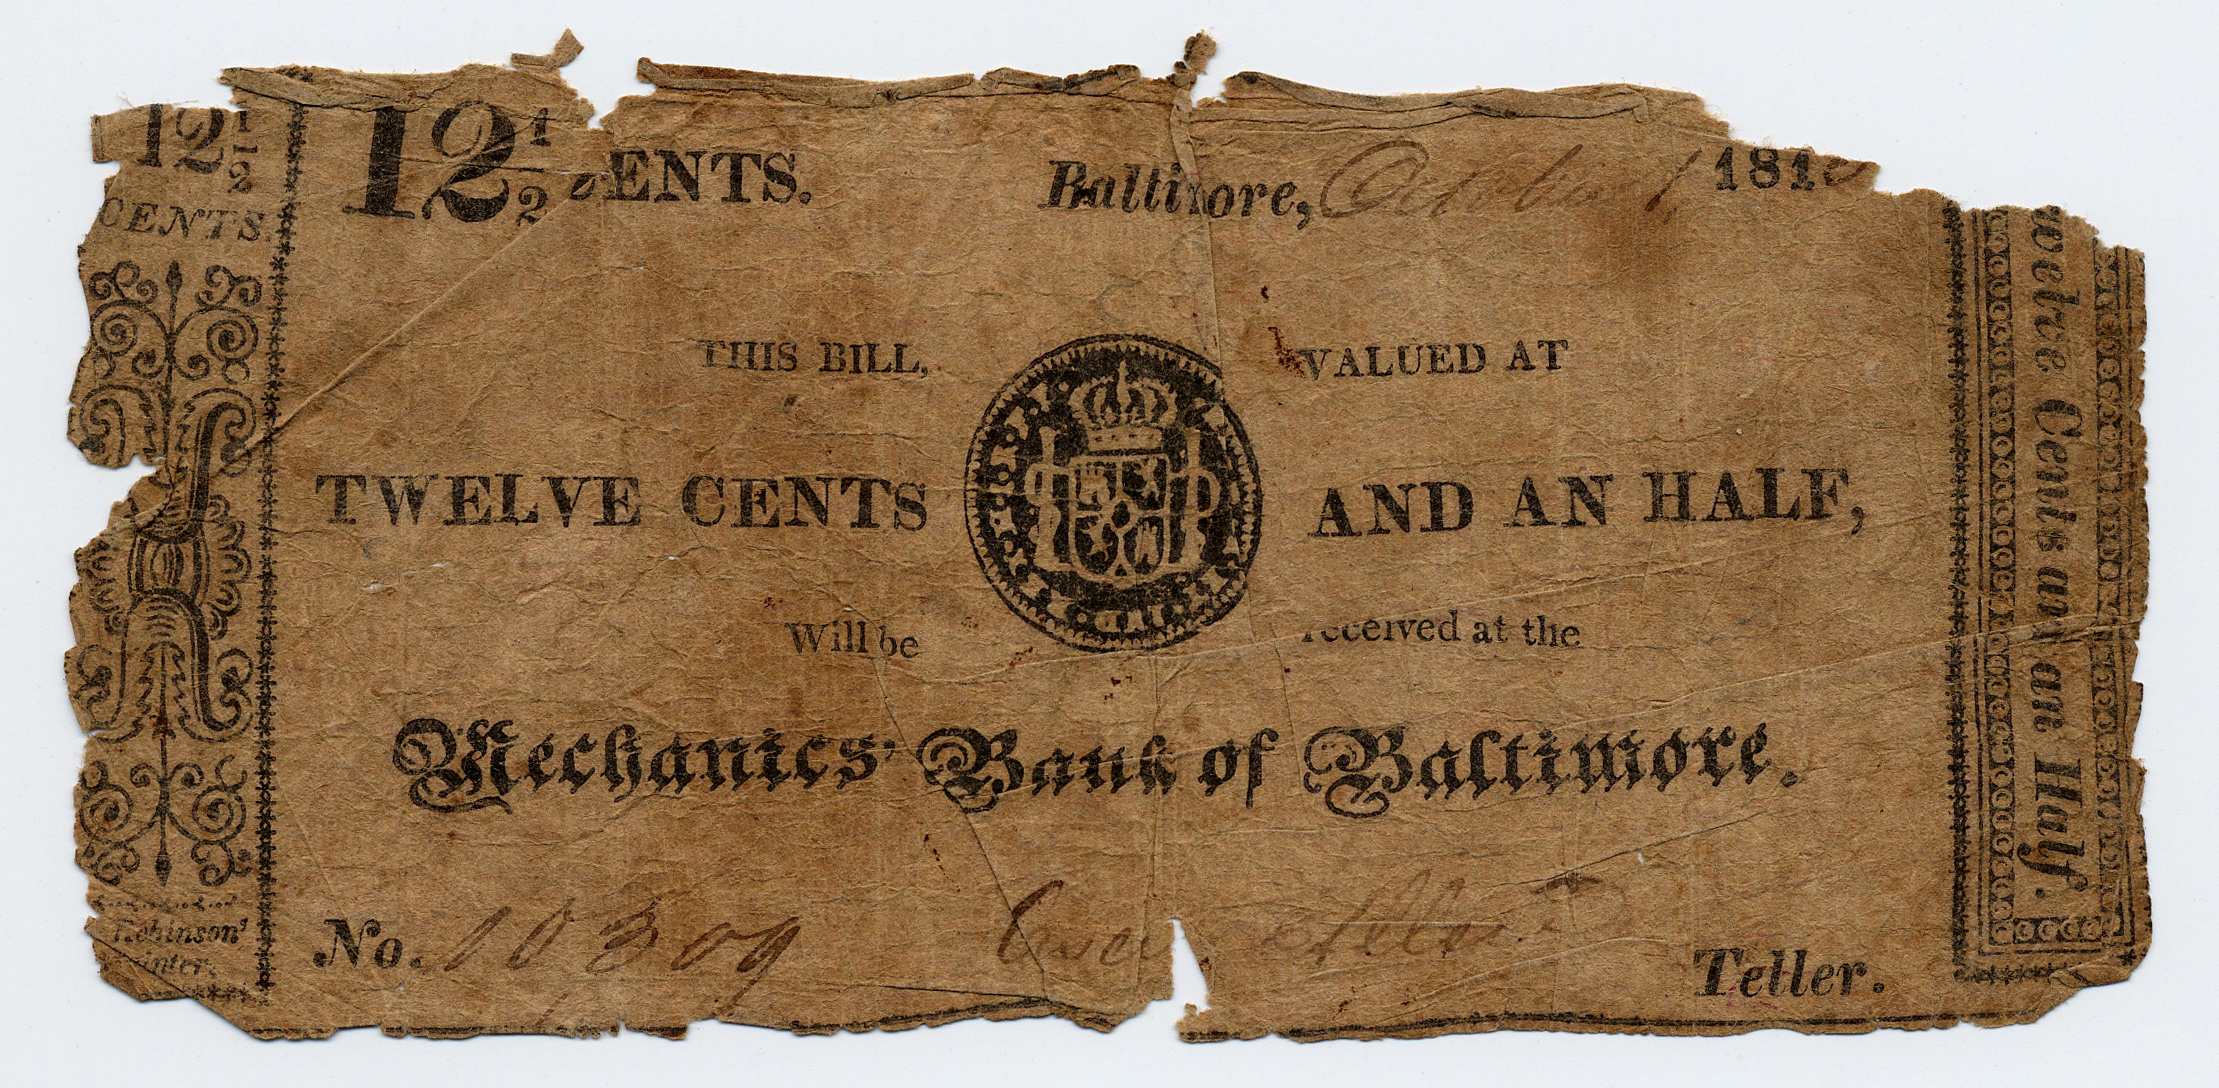 12 1/2
CENTS.
12 1/2 CENTS.
Baltimore, October 1, 181
THIS BILL, VALUED AT
TWELVE CENTS AND AN HALF,
Will be received at the
Mechanics' Bank of Baltimore.
No. 10309
Teller.
Robinson
welve Cents and an Half.